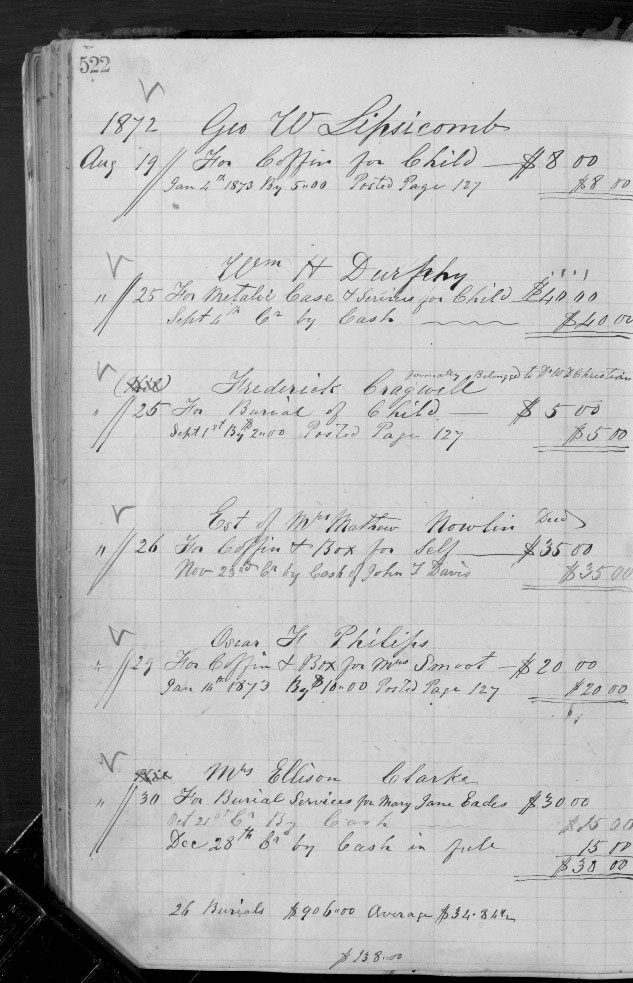 522
1872 Geo W Lipsicomb
Aug 19 For Coffin for Child $8 00
Jan 4th 1873 By 5"00 Posted Page 127 $8 00
Wm H Durphy
" 25 For Metalic Case & Services for Child $40 00
Sept 4th Cr by Cash $40 00
formally Belonged to Dr W D Christian
Frederick Cragwell
" 25 For Burial of Child $5 00
Sept 1st By $2"00 Posted Page 127 $5 00
Est of Mrs Mathew Nowlin Decd
" 26 For Coffin & Box for Self $35 00
Nov 23rd Cr by Cash of John T Davis $35 00
Oscar F Philips
" 29 For Coffin & Box for Mrs Smoot $20 00
Jan 14th 1873 By $10"00 Posted Page 127 $20 00
Mrs Ellison Clarke
" 30 For Burial Services for Mary Jane Eades $30 00
Oct 21st Cr By Cash $15 00
Dec 28th Cr by Cash in full 15 00
$30 00
26 Burials $906"00 Average $34.84
$138"00